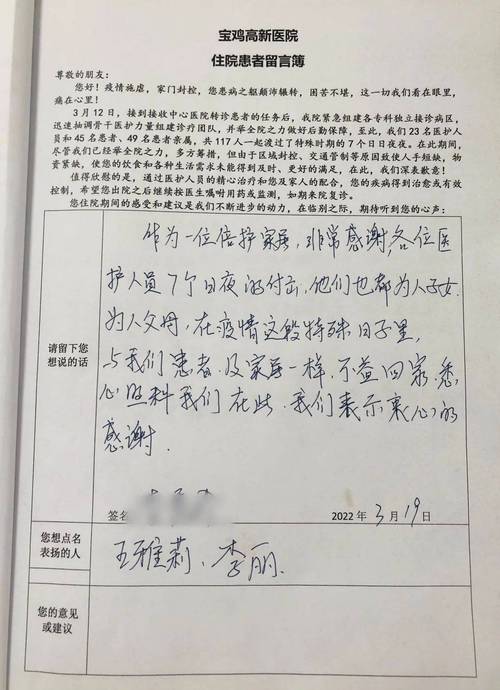 宝鸡高新医院
住院患者留言簿
尊敬的朋友：
您好！疫情施虐，家门封控，您患病之躯颠沛辗转，困苦不堪，这一切我们看在眼里，
痛在心里！
3月12日，接到接收中心医院转诊患者的任务后，我院紧急组建各专科独立接诊病区，
迅速抽调骨干医护力量组建诊疗团队，并举全院之力做好后勤保障，至此，我们23名医护人
员和45名患者、49名患者亲属，共117人一起渡过了特殊时期的7个日日夜夜。在此期间，
尽管我们已经举全院之力，多方筹措，但由于区域封控、交通管制等原因致使人手短缺，物
资紧缺，使您的饮食和各种生活需求未能得到及时、更好的满足，在此，我们深表歉意！
值得欣慰的是，通过医护人员的精心治疗和您及家人的配合，您的疾病得到治愈或有效
控制，希望您出院之后继续按医生嘱咐用药或监测，如期来院复诊。
您住院期间的感受和建议是我们不断进步的动力，在临别之际，期待听到您的心声：
请留下您
想说的话
作为一位倍护家属，非常感谢，各位医
护人员7个日夜的付出，他们也都为人子女
为人父母，在疫情这段特殊日子里，
与我们患者及家属一样，不益回家，悉
心照料我们在此，我们表示衷心的
感谢．
签名
2022年3月19日
您想点名
表扬的人
王雅莉、李丽．
您的意见
或建议